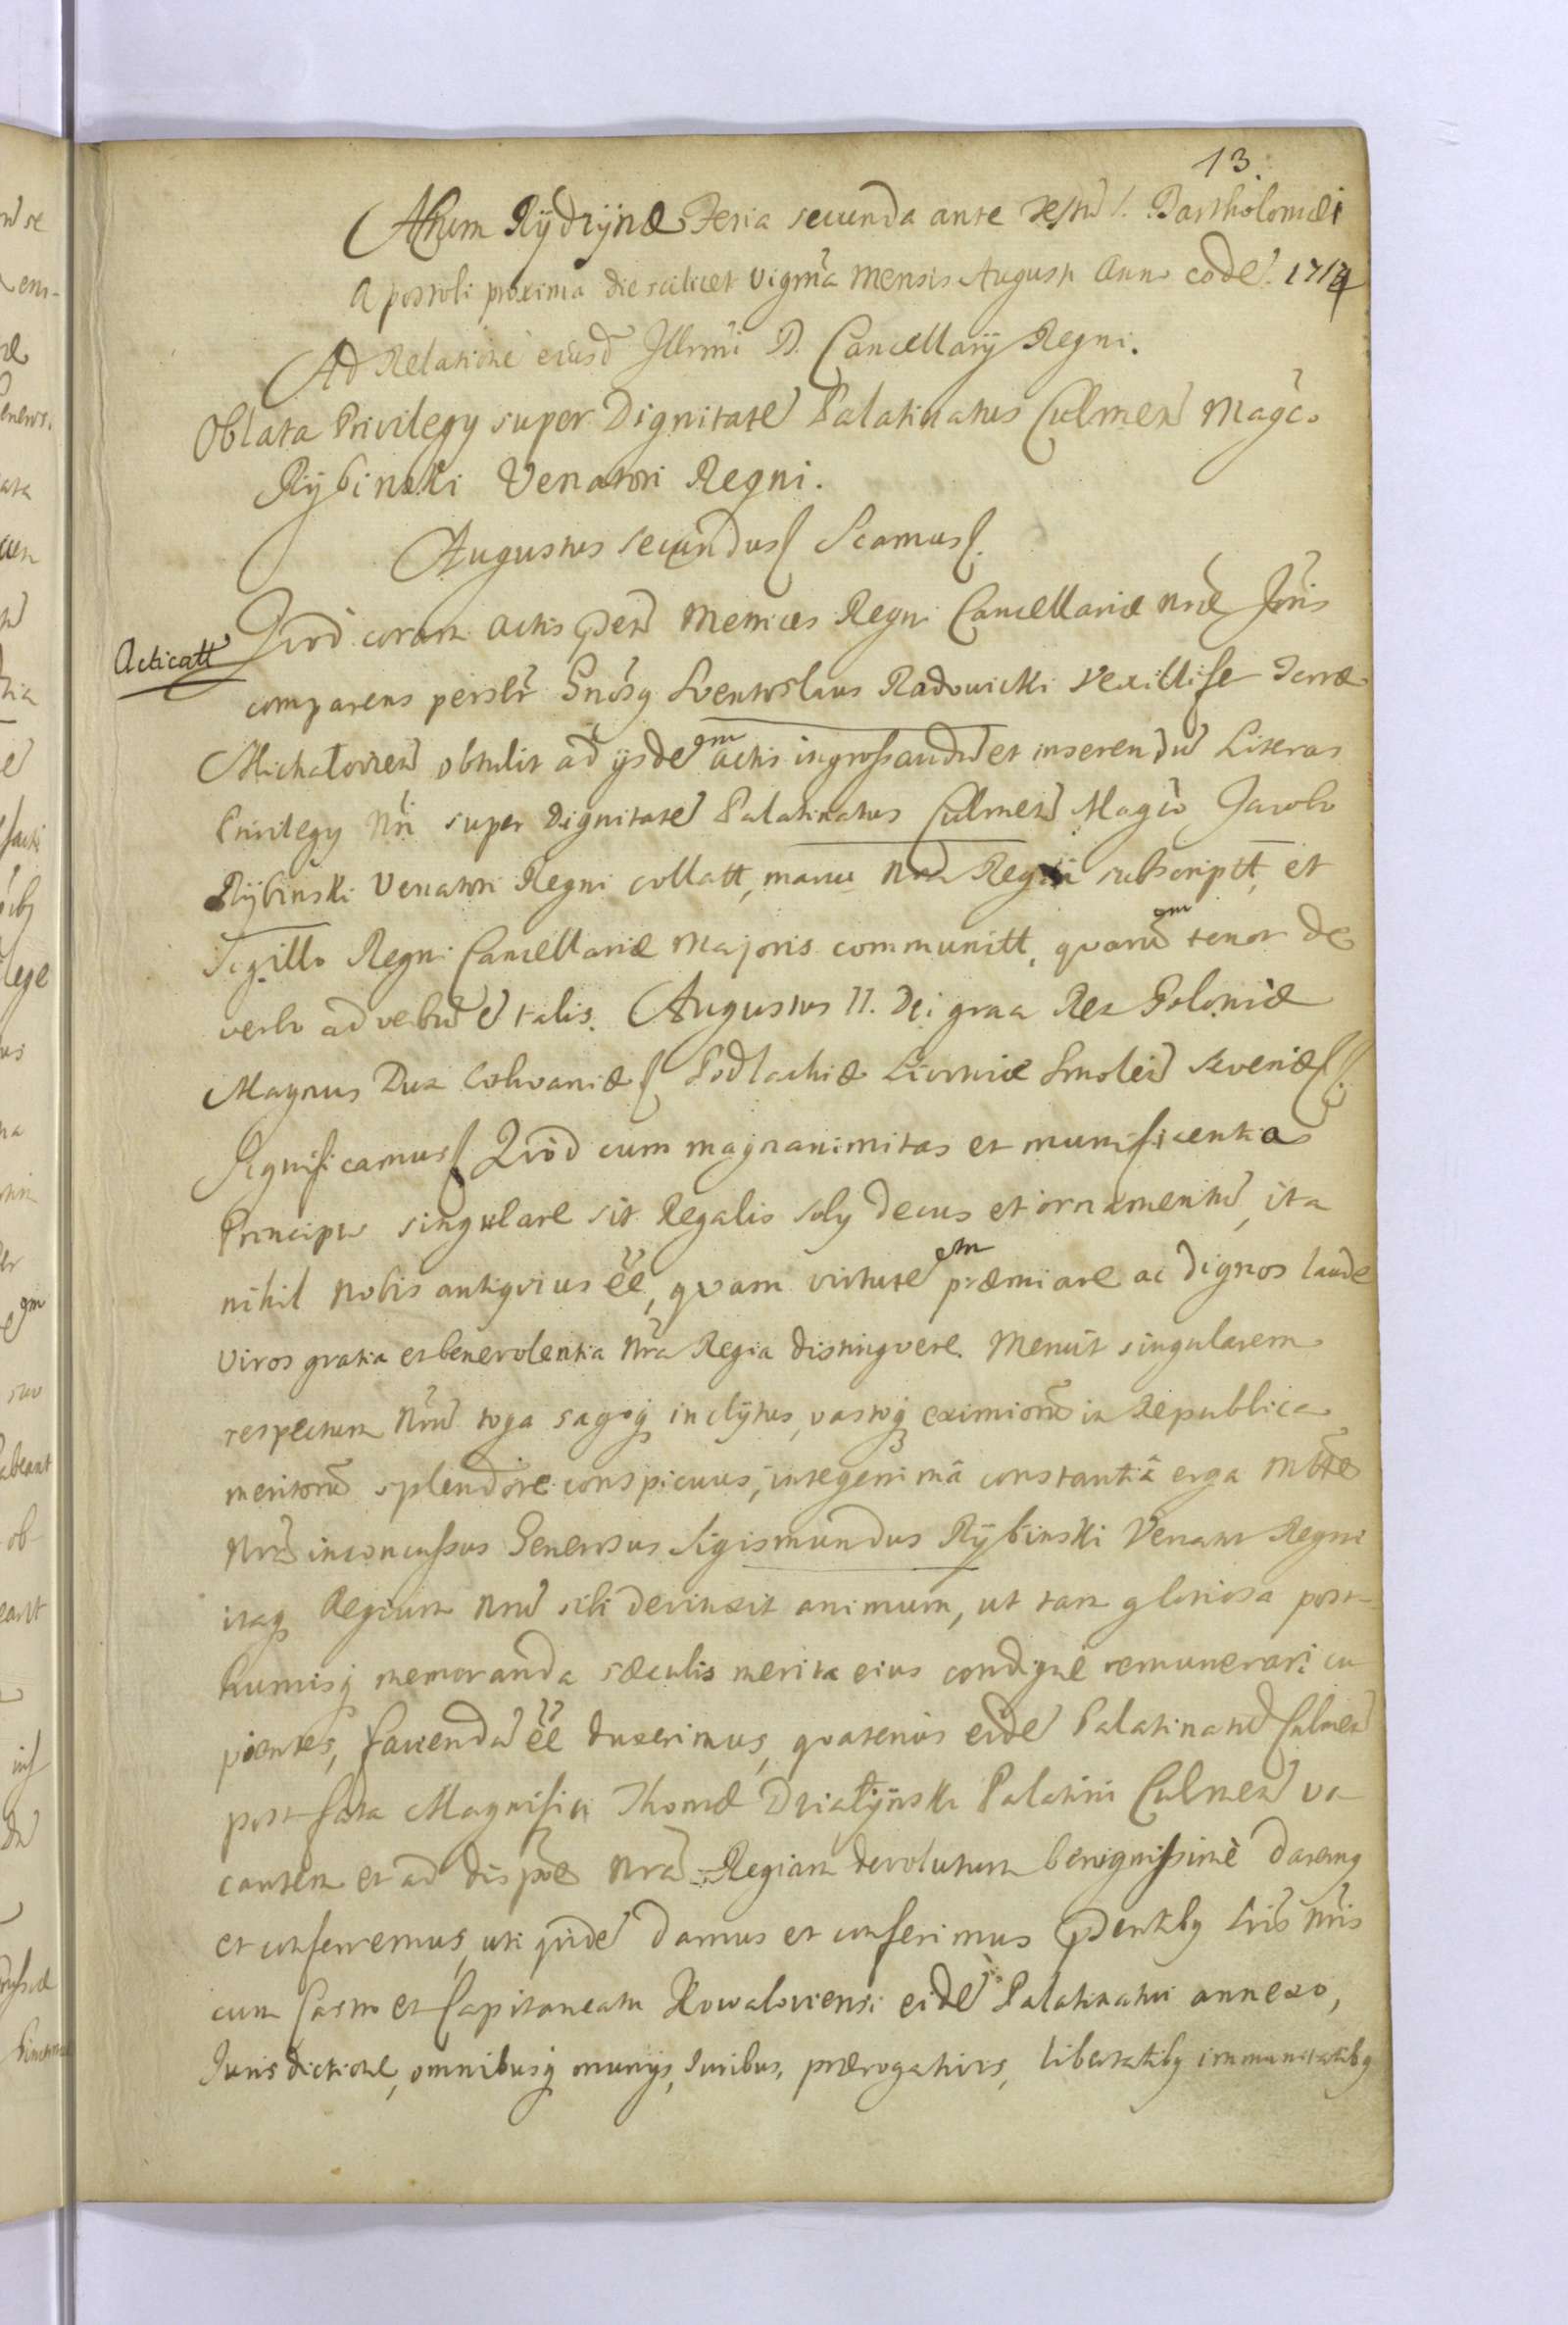 13.
Actum Rÿdzÿnæ Feria secunda ante Festũ S. Bartholomæi
Apostoli proxima die scilicet vigm̃a Mensis Augusti Anno eodẽ. 1714
Ad Relationẽ eiusd̃ Illrm̃i D. Cancellarÿ Regni.
Oblata Privilegy super Dignitatẽ Palatinatus Culmeñ Magc̃o
Rÿbinski Venatori Regni.
Augustus Secundus Scamus
Acticatt
Qvod coram Actis pñteñ Metrices Regni Cancellariæ nr̃æ Joris
comparens personlr̃ Gnõsq Swentoslaus Radowicki Vexillifer Terræ
Michaloviеñ obtulit ad ysdem actis ingrossandũ et inserendũ Literas
Privilegy nr̃i super Dignitatẽ Palatinatus Culmeñ Magc̃o Jacobo
Rÿbinski Venatori Regni collatt, manu nr̃a Regia subscriptt, et
Sigillo Regni Cancellariæ Majoris communitt, qvarũm tenor de
verbo ad verbũ ẽ talis. Augustus II. Dei graa Rex Poloniæ
Magnus Dux Lithvaniæ Podlachiæ Livoniæ Smoleñ Severiæ
Significamus Qvod cum magnanimitas et munificentia
Principis singulare sit Regalis soly decus et ornamentũ, ita
nihil nobis antiqvius ẽẽ, qvam virtutem præmiare ac dignos laude
viros gratia et benevolentia nr̃a Regia distingvere. Meruit singularem
respectum nr̃ũ toga sagoq inclÿtus, vastoq eximiorũ in Republica
meritorũ splendore conspicuus, integerrimâ constantiâ erga Mtt̃e
nr̃ã inconcussus Generosus Sigismundus Rÿbinski Venator Regni
itaq Regium nr̃ũ sibi devinxit animum, ut tam gloriosa post-
humisq memoranda sæculis merita eius condigne remunerari cu-
pientes, faciendũ ẽẽ duxerimus, qvatenus eidẽ Palatinatũ Culmeñ
post fata Magnifici Thomæ Dzialÿnski Palatini Culmeñ va-
cantem et ad disp̃oẽ nr̃ã Regiam devolutum benignissimè daremq
et conferremus, uti qvidẽ damus et conferimus pñtibq Lr̃is nr̃is
cum Castro et Capitaneatu Kowaloviensi eidẽ Palatinatui annexo,
Jurisdictione, omnibusq munijs, Juribus, prærogativis, libertatibq immunitatibq